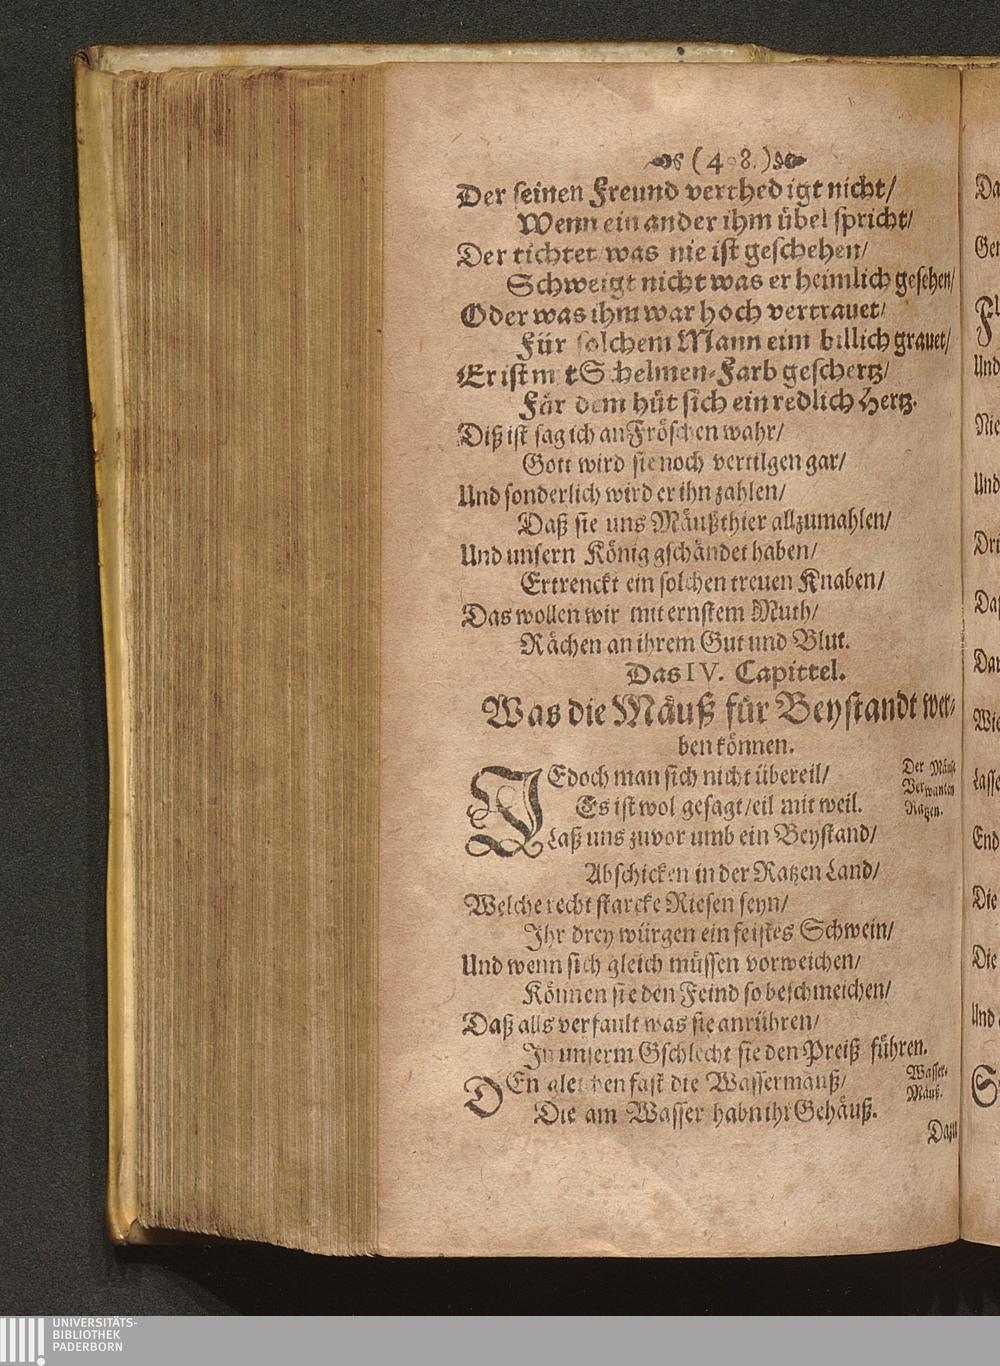 (408.)
Der seinen Freund verthedigt nicht/
Wenn ein ander ihm übel spricht/
Der tichtet was nie ist geschehen/
Schweigt nicht was er heimlich gesehen/
Oder was ihm war hoch vertrauet/
Für solchem Mann eim billich grauet/
Er ist mit Schelmen-Farb geschertz/
Fär dem hüt sich ein redlich Hertz.
Diß ist sag ich an Fröschen wahr/
Gott wird sie noch vertilgen gar/
Und sonderlich wird er ihn zahlen/
Daß sie uns Mäußthier allzumahlen/
Und unsern König gschändet haben/
Ertrenckt ein solchen treuen Knaben/
Das wollen wir mit ernstem Muth/
Rächen an ihrem Gut und Blut.
Das IV. Capittel.
Was die Mäuß für Beystandt wer-
ben können.
JEdoch man sich nicht übereil/
Es ist wol gesagt/eil mit weil.
Laß uns zuvor umb ein Beystand/
Abschicken in der Ratzen Land/
Welche recht starcke Riesen seyn/
Ihr drey würgen ein feistes Schwein/
Und wenn sich gleich müssen vorweichen/
Können sie den Feind so beschmeichen/
Daß alls verfault was sie anrühren/
In unserm Gschlecht sie den Preiß führen.
DEn gleichen fast die Wassermäuß/
Die am Wasser habn ihr Gehäuß.
Dazu
Der Mäuse
Verwanten
Ratzen.
Wasser-
Mäuß.
Da
Ger
Fl
Und
Nie
Und
Dri
Das
Dar
Wie
Lasse
End
Die
Die
Und
S
UNIVERSITÄTS-
BIBLIOTHEK
PADERBORN